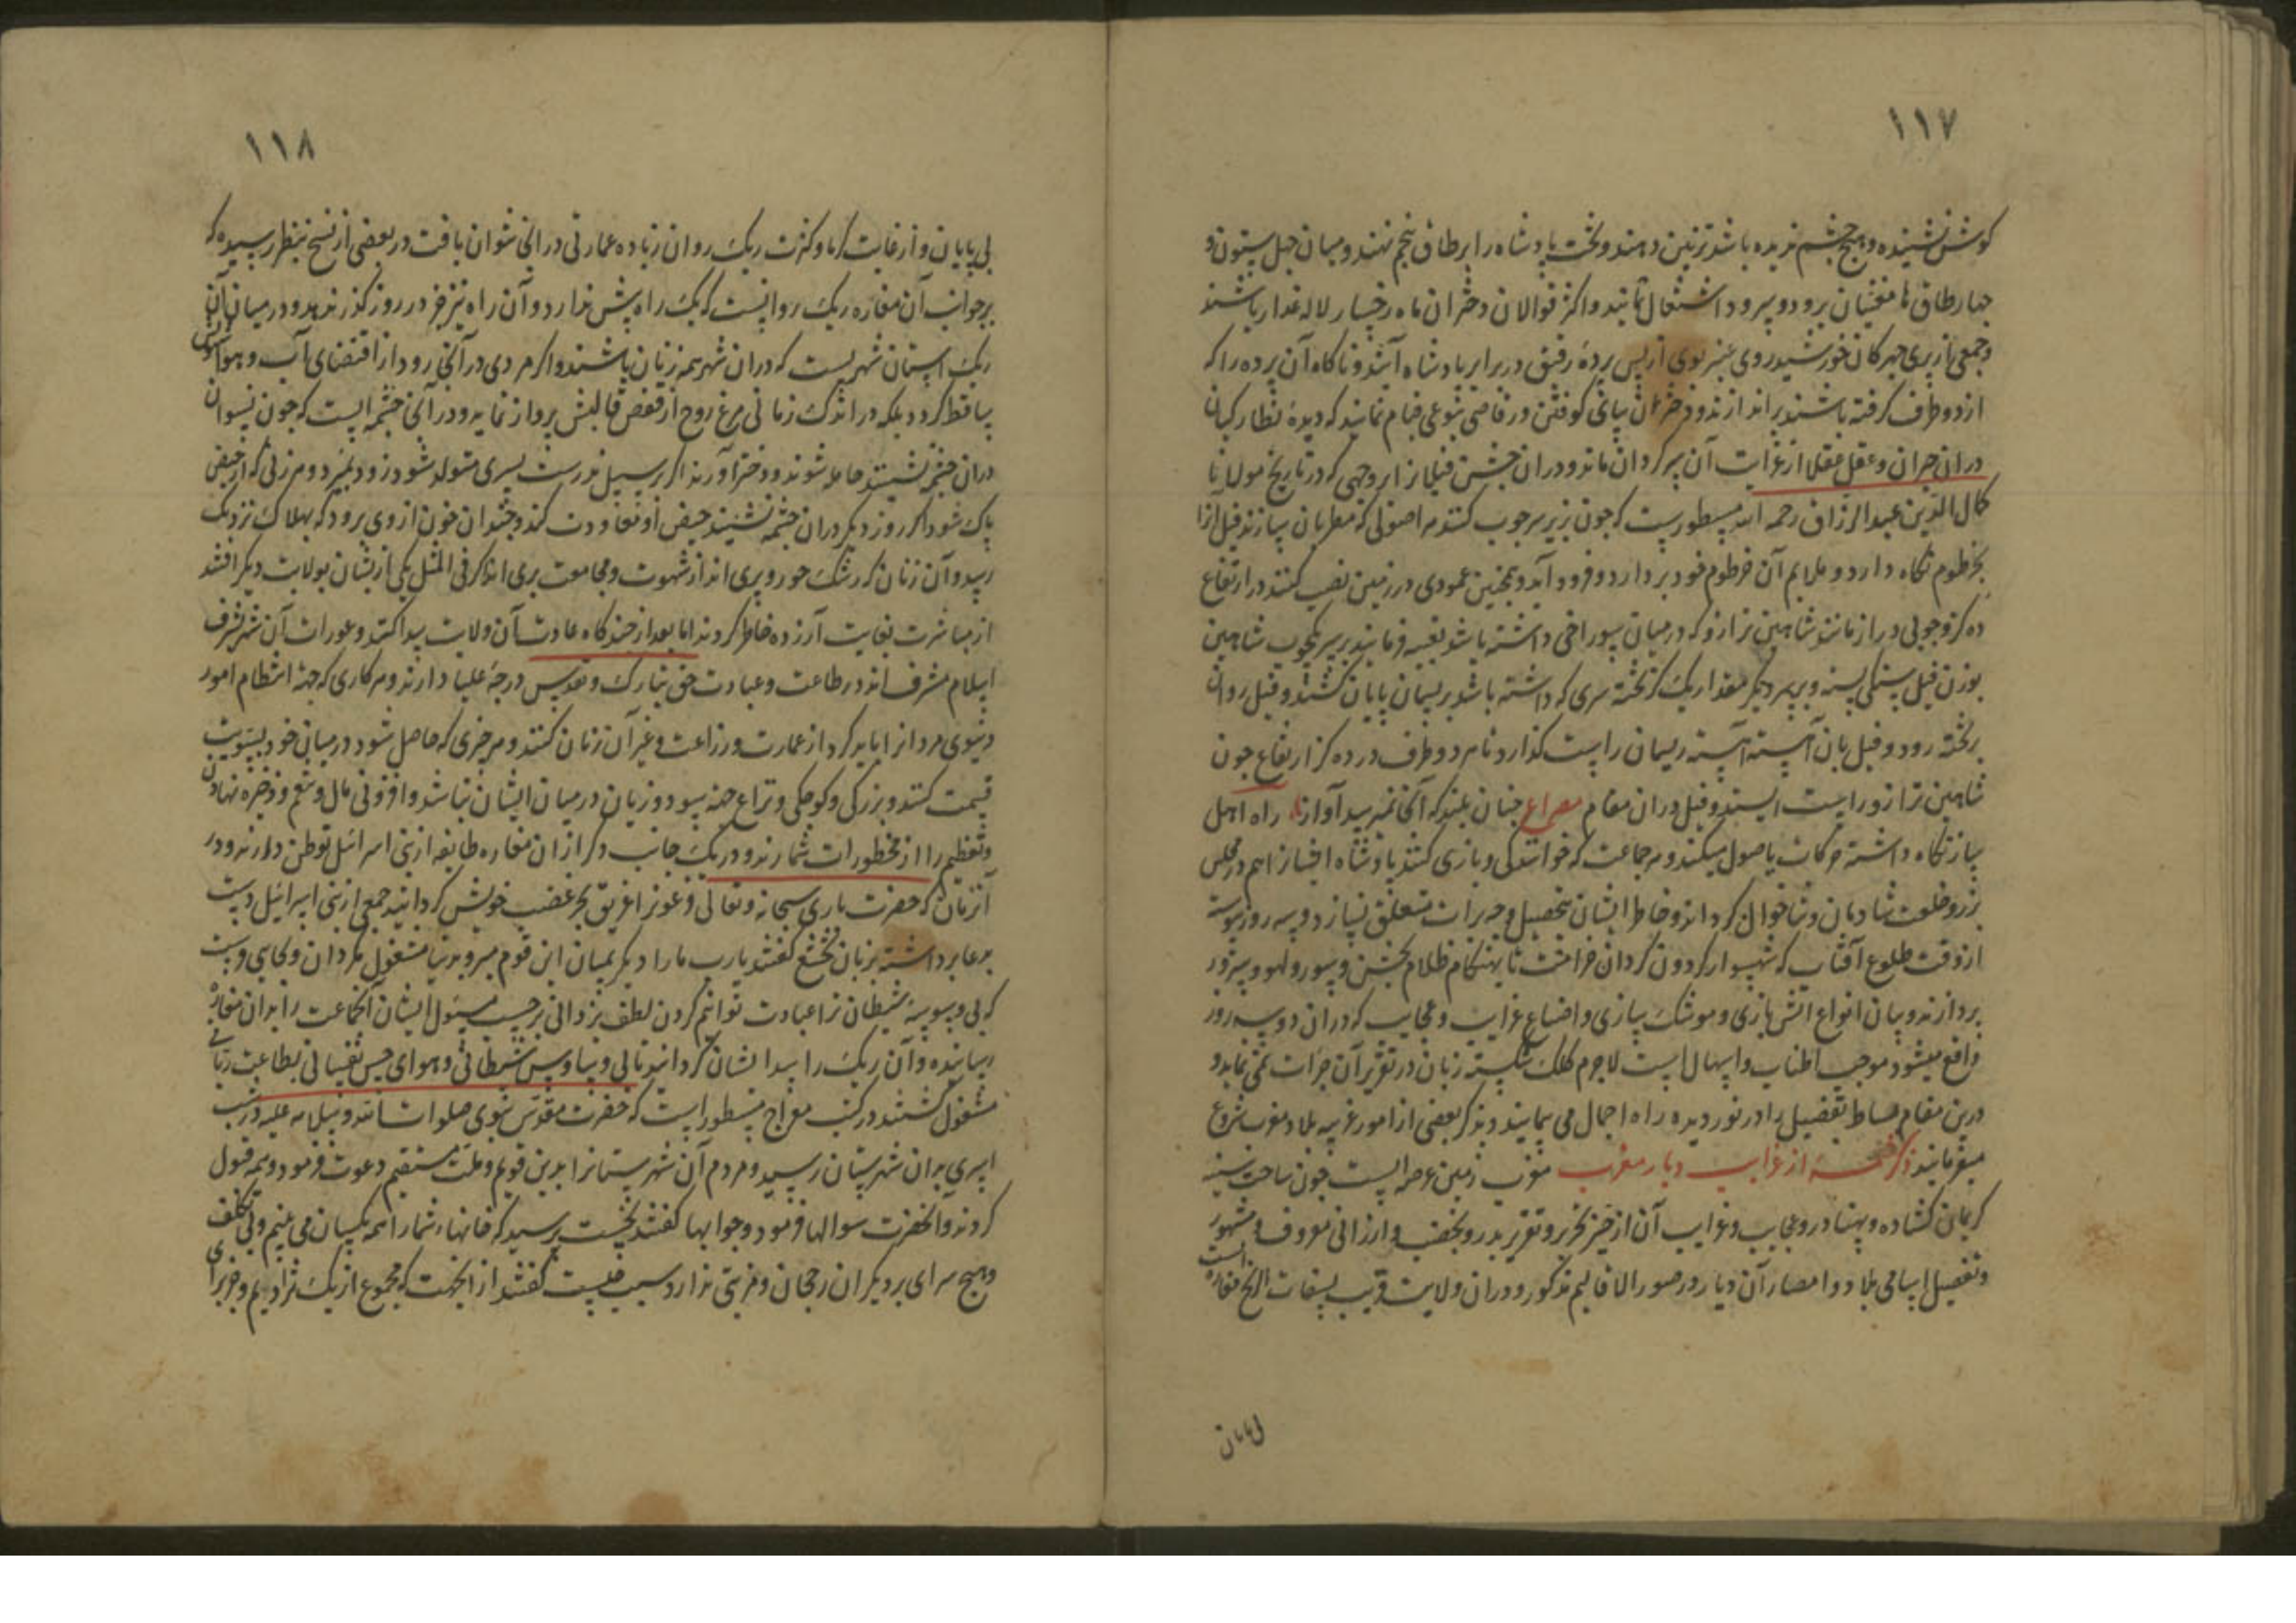 ۱۱۷
کوش نشنیده و هیچ چشم ندیده باشد تزیین دهند و تخت پادشاه را بر طاق پنجم نهند و میان چهل ستون و
چهار طاق تا مغنیان برود و سرود اشتغال نمایند و اکثر قوالان دختران ماه رخسار لاله عذار باشند
و جمعی از پری چهرکان خورشید روی عنبر بوی از پس پردهٔ رقیق در برابر پادشاه آیند و ناکاه آن پرده را که
از دو طرف کرفته باشند براندازند و دختران بپای کوفتن و رقاصی بنوعی قیام نمایند که دیدهٔ نظارکیان
در ان حیران و عقل عقلا از غرابت آن سرکردان ماند و در ان جشن فیلانرا بر وجهی که در تاریخ مولانا
کمال الدین عبد الرزاق رحمه الله مسطورست که چون زیر سر چوب کنند هر اصولی که مطربان سازند فیل آنرا
بخرطوم نکاه دارد و ملایم آن خرطوم خود بردارد و فرود آید و همچنین عمودی در زمین نصب کنند در ارتفاع
ده کز و چوبی دراز مانند شاهین ترازو که در میان سوراخی داشته باشد تعبیه فرمایند بر سر یکچوب شاهین
بوزن فیل سنکی بسته و بر سر دیکر مقدار یک کز تخته سری که داشته باشد بریسمان پایان کشند و فیل روان
بر تخته رود و فیل بان آهسته آهسته ریسمان را سست کذارد تا هر دو طرف در ده کز ارتفاع چون
شاهین ترازو راست ایستند و فیل در ان مقام مصراع چنان بلند که آنجا نمیرسد آواز راه اهل
ساز نکاه داشته حرکات باصول میکند و هر جماعت که خوانندکی و بازی کنند پادشاه ایشانرا هم در مجلس
بزر و خلعت شادمان و ثنا خوان کرداند و خاطر ایشان بتحصیل وجه برات متعلق نسازد و سه روز پیوسته
از وقت طلوع آفتاب که شهسوار کردون کردان خرامست تا بهنکام ظلام بجشن و سور و لهو و سرور
پردازند و بیان انواع آتش بازی و موشک سازی و اوضاع غرایب و عجایب که در ان دو سه روز
واقع میشود موجب اطناب و اسهال است لاجرم کلک شکسته زبان در تقریر آن جرات نمی نماید و
درین مقام بساط تفصیل را در نوردیده راه اجمال می پیماید و بذکر بعضی از امور غریبه بلاد مغرب شروع
میفرماید ذکر شمه از غرایب دیار مغرب مغرب زمین عرصه ایست چون ساحت سینه
کریمان کشاده و پهناور و عجایب و غرایب آن از حیز تحریر و تقریر بدر و بخصب و ارزانی معروف و مشهور
و تفصیل اسامی بلاد و امصار آن دیار در صور الاقالیم مذکور و در ان ولایت قریب بسقات الریح مفازه ایست
بی پایان
۱۱۸
بی پایان و از غایت کرما و کثرت ریک روان زیاده عمارتی در انجا نتوان یافت در بعضی از نسخ بنظر رسیده که
بر جوانب آن مفازه ریک روانیست که یک راه بیش ندارد و آن راه نیز جز در روز کذر ندهد و در میان آن
ریک استان شهریست که در ان شهر همه زنان باشند و اکر مردی در آنجا رود از اقتضای آب و هوا
ساقط کردد بلکه در اندک زمانی مرغ روح از قفص قالبش پرواز نماید و در آنجا چشمه ایست که چون نسوان
در ان چشمه نشینند حامله شوند و دختر آورند اکر بر سبیل ندرت پسری متولد شود زود بمیرد و هر زنی که از حیض
پاک شود اکر روز دیکر در ان چشمه نشیند حیض او معاودت کند و چندان خون از وی برود که بهلاک نزدیک
رسد و آن زنان که رشک حور و پری اند از شهوت و مجامعت بری اند اکر فی المثل یکی از یشان بولایت دیکر افتد
از مباشرت بغایت آزرده خاطر کردند اما بعد از چند کاه عادت آن ولایت پیدا کنند و عورات آن شهر بشرف
اسلام مشرف اند و در طاعت و عبادت حق تبارک و تقدس درجهٔ علیا دارند و هر کاری که جهة انتظام امور
دنیوی مردانرا باید کرد از عمارت و زراعت و غیر آن زنان کنند و هر چیزی که حاصل شود در میان خود بسویت
قسمت کنند و بزرکی و کوچکی و نزاع جهة سود و زیان در میان ایشان نباشد و افزونی مال و تنعم و ذخیره نهادن
و تعظیم را از محظورات شمارند و در یک جانب دکر از ان مفازه طایفه از بنی اسرائیل توطن دارند و در
آنزمان که حضرت باری سبحانه و تعالی فرعونرا غریق بحر غضب خویش کردانید جمعی از بنی اسرائیل دست
بدعا برداشته بزبان تخشع کفتند یارب ما را دیکر بمیان این قوم مبر و بدنیا مشغول مکردان و بجایی فرست
که بی وسوسهٔ شیطان ترا عبادت توانیم کردن لطف یزدانی بر حسب مسئول ایشان آنجماعت را بدان مفازه
رسانیده و آن ریک را سد ایشان کردانید تا بی وساوس شیطانی و هوای حس نفسانی بطاعت ربانی
مشغول کشتند در کتب معراج مسطور است که حضرت مقدس نبوی صلوات الله و سلامه علیه در شب
اسری بدان شهرستان رسید و مردم آن شهرستانرا بدین قویم و ملت مستقیم دعوت فرمود و همه قبول
کردند و آنحضرت سوالها فرمود و جوابها کفتند نخست پرسید که خانهاء شما را همه یکسان می بینم و بی تکلف
و هیچ سرای بر دیکران رجحان و مزیتی ندارد سبب چیست کفتند از اینجهت که مجموع از یک نژادیم و جز برای